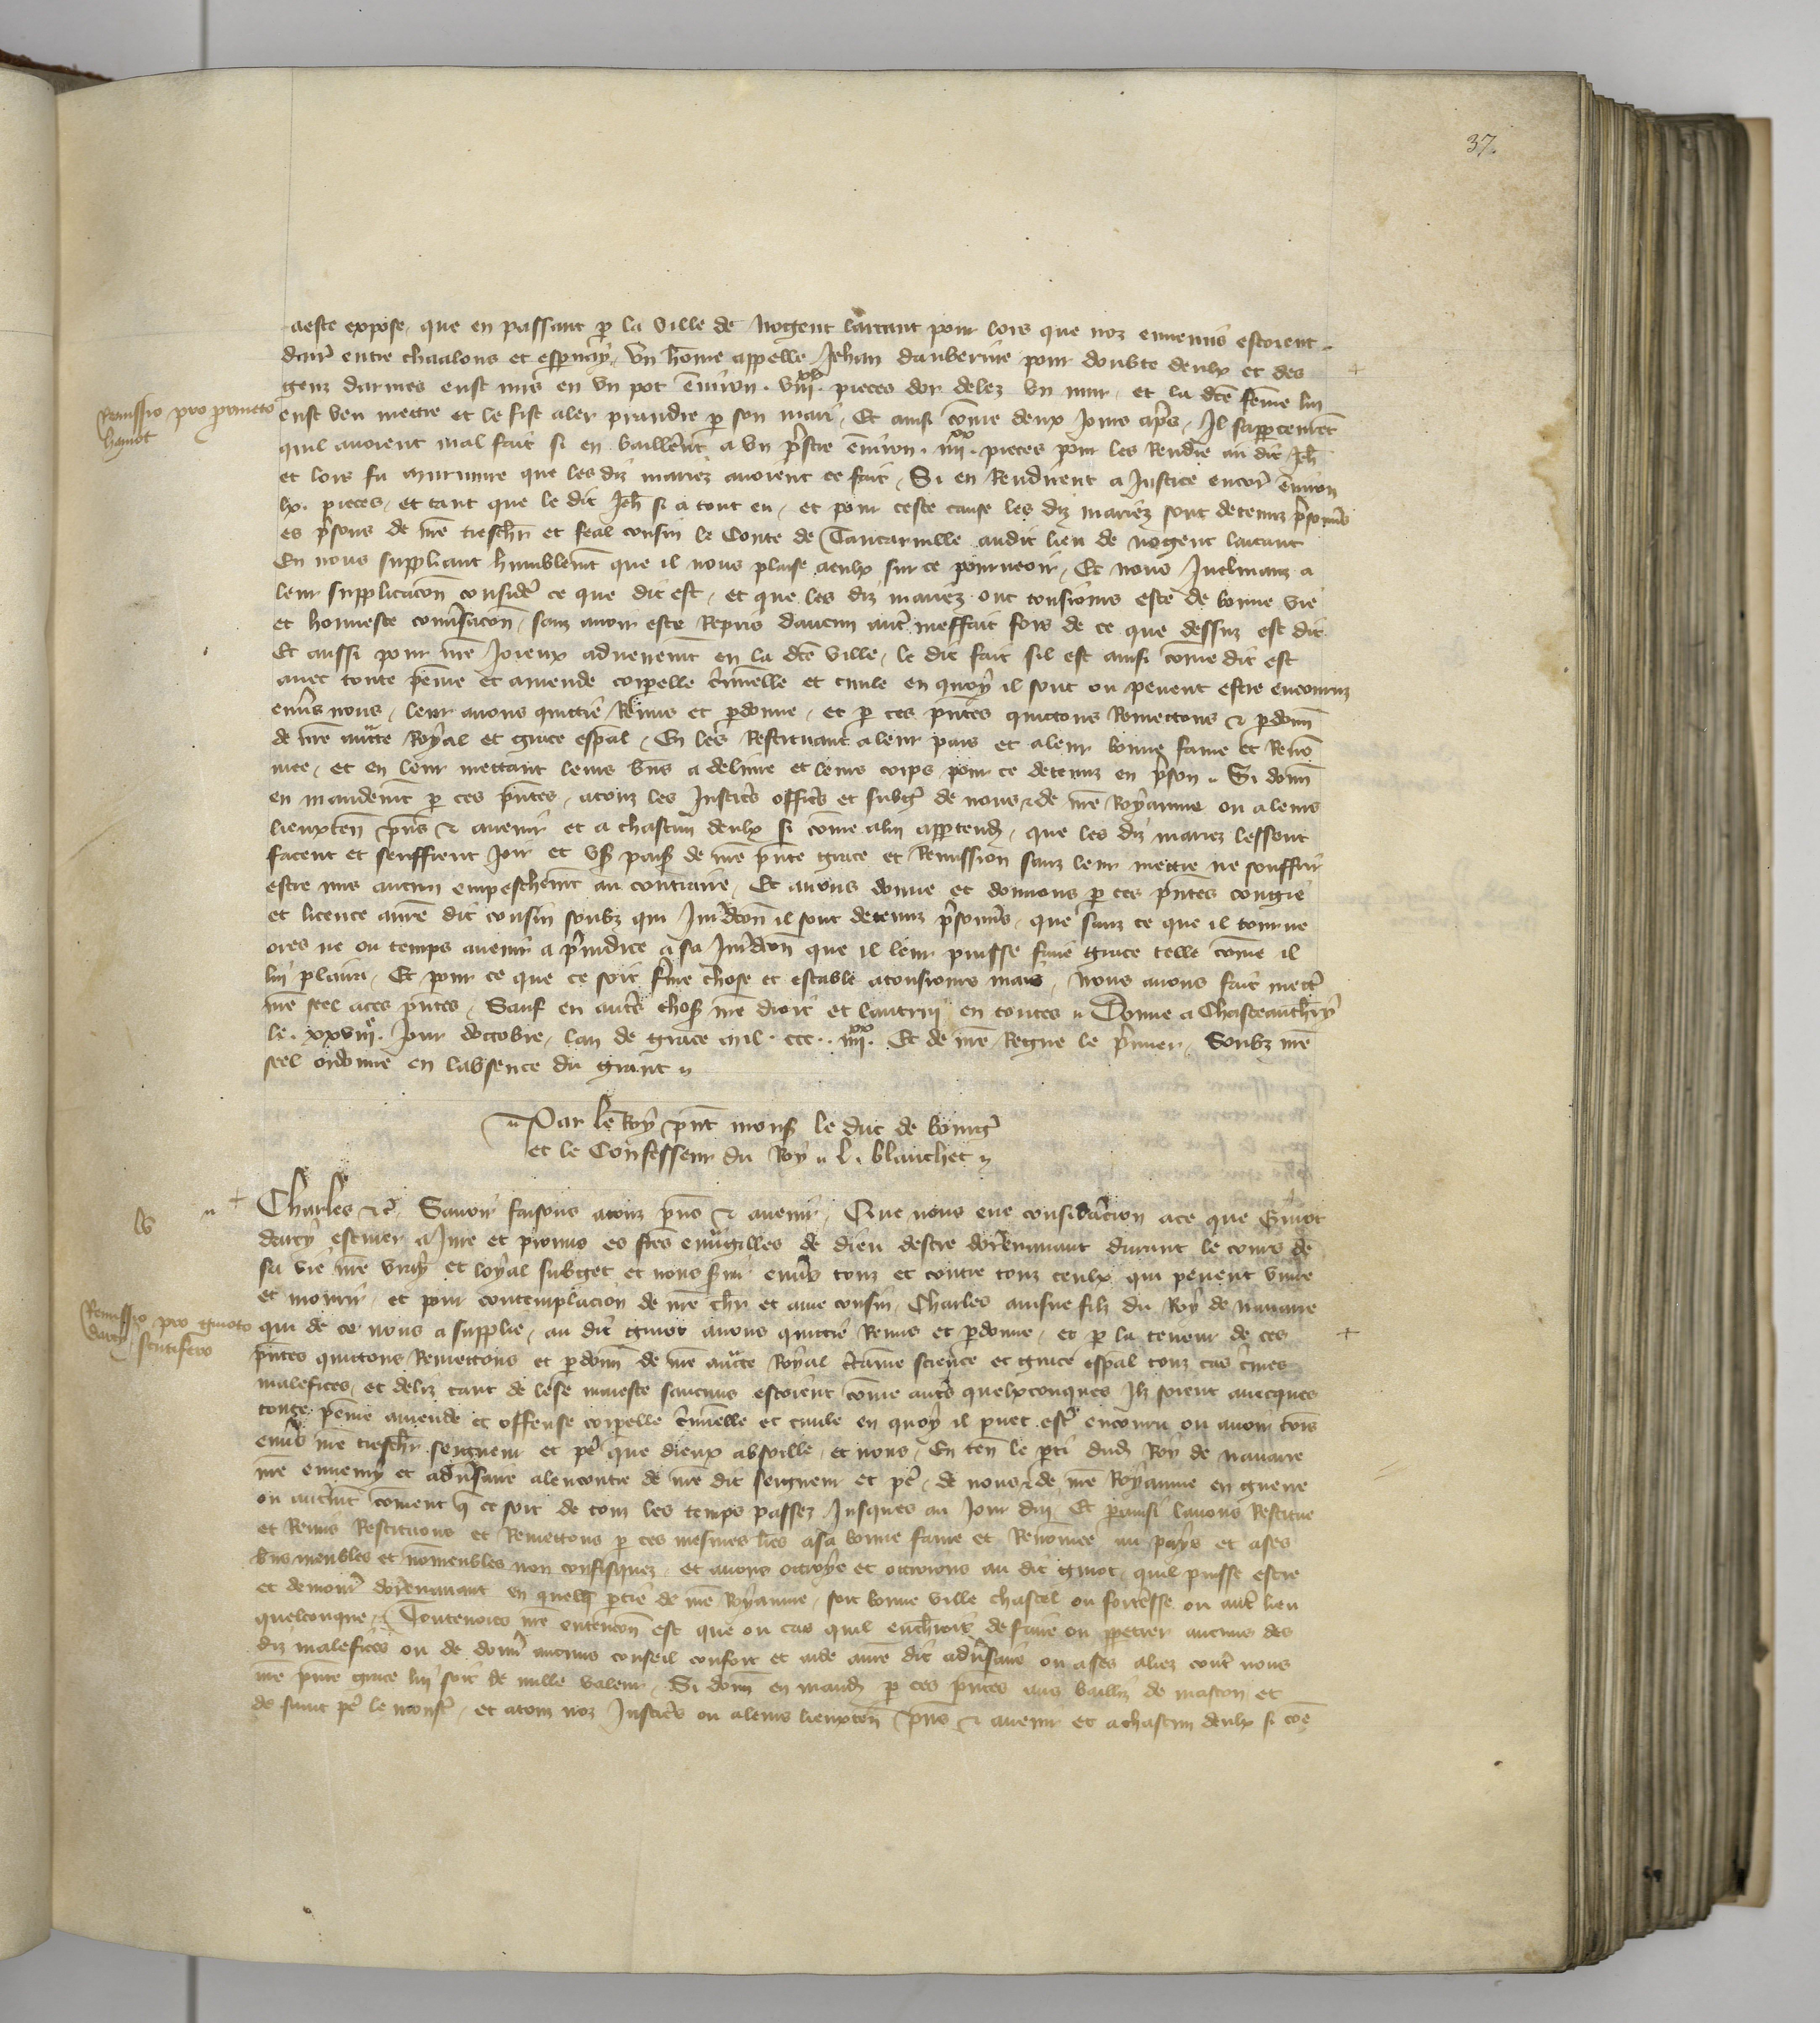 37.
aeste expose, que en passant p la ville de Nogent lartaut pour lors que noz ennemis estoient
darr entre chaalons et espernay, Un home appelle Jehan dauberive pour doubte deulx et des
genz darmes eust mis en un pot environ . viiixx. pieces dor delez un mur, et la dce feme lui
Remissio pro pometo
hanot
eust veu mettre et le fist aler prandre p son mari, Et ainsi come deux jours apres, Il sappceurent
quil avoient mal fait si en baillerent a un prstre environ . iiiixx . pieces pour les Rendre au dit Jeh
et lors fu murmure que les diz mariez avoient ce fait, Si en Rendirent a Justice encor environ
lx. pieces, et tant que le dit Jeh si a tout eu, et pour ceste cause les diz mariez sont detenuz prsonns
es prsons de nre treschr et feal cousin le Conte de Tancarville audit lieu de Nogent lartaut
En nous suppliant humblemt que il nous plaise a eulx sur ce pourveoir, Et nous Inclinanz a
leur supplicacon consider ce que dit est, et que les diz mariez ont tousiours este de bonne vie
et honneste conversacon, sanz avoir este Repris daucun autr meffait fors de ce que dessuz est dit
Et aussi pour nre Joieux advenemt en la dce ville, le dit fait sil est ainsi come dit est
avec toute peine et amende corpelle criminelle et civile en quoy il sont ou pevent estre encouruz
envrs nous, leur avons quittie Remis et pdonne, et p ces pntes quittons Remettons & pdonn
de nre aucte Royal et grace espal, En les Restituant a leur pais et a leur bonne fame et Reno
mee, et en leur mettant leurs bns a delivre et leurs corps pour ce detenuz en prson. Si donn
en mandemt p ces pntes, a touz les Justicrs officrs et subgr de nous & de nre Royaume ou a leurs
lieuxten pns & avenir et a chascun deulx si come a lui apptend, que les diz mariez lessent
facent et seuffrent Joir et us paisi de nre pnte grace et Remission sanz leur mettre ne souffrir
estre mis aucun empeschemt au contraire, Et avons donne et donnons p ces pntes congie
et licence a nre dit cousin soubz qui Jurdicon il sont detenuz prsonns, que sanz ce que il tourne
ores ne ou temps avenir a prjudice a sa Jurdicon que il leur puisse faire grace telle come il
lui plaira, Et pour ce que ce soit ferme chose et estable a tousiours mais, nous avons fait mettr
nre seel a ces pntes, Sauf en autrs chos nre droit et lautrui en toutes. Donne a Chasteauthry
le . xxviiie. jour doctobre, lan de grace mil . ccc . iiiixx . Et de nre Regne le prmier, Soubz nre
seel ordonne en labsence du grant.
Par le Roy pnt mons le duc de bourgr
et le Confesseur du Roy. L. blanchet.
lv
Charles &c. Savoir faisons a touz pns & avenir, Que nous eue consideracion a ce que Guiot
darcy escuier a Jure et promis es stes euvangilles de dieu destre dorenavant durant le cours de
sa vie nre vray et loyal subget et nous srvir envrs touz et contre touz ceulx qui pevent vivre
et mourir, et pour contemplacion de nre chr et ame cousin, Charles ainsne filz du Roy de Navarre
Remissio pro guioto
darcy scutifero
qui de ce nous a supplie, au dit guiot avons quittie Remis et pdonne, et p la teneur de ces
pntes quittons Remettons et pdonn de nre aucte Royal crtaine science et grace espal touz cas crimes
malefices et deliz tant de lese maieste saucuns estoient come autrs quelxconques Ilz soient avecques
toute peine amende et offense corpelle criminelle et civile en quoy il puet estr encouru ou avoir corus
envrs nre treschr seigneur et pere que dieux absoille, et nous, En ten le pti dud Roy de navarre
nre ennemy et adversaire a lencontre de nre dit seigneur et pere, de nous & de nre Royaume en guerre
ou autremt coment q ce soit de tout les temps passez Jusques au jour duy, Et p ainsi lavons Restitue
et Remis Restituons et Remettons p ces mesmes lres a sa bonne fame et Renomee au pays et a ses
bns meubles et nomeubles non confisquez, et avons ottroye et ottroions au dit guiot, quil puisse estre
et demourr dorenavant en quelq ptie de nre Royaume, soit bonne ville chastel ou forteresse ou autr lieu
quelconque, Toutevoies nre entencon est que ou cas quil encherroit de faire ou ppetrer aucuns des
diz malefices ou de donnr aucuns conseil confort et aide a nre dit adversaire ou a ses aliez contr nous
nre pnte grace lui soit de nulle valeur, Si donn en mand p ces pntes aus bailliz de mascon et
de saint pere le monstr, et a tous noz Justicrs ou a leurs lieuxten pns & avenir et a chascun deulx si coe